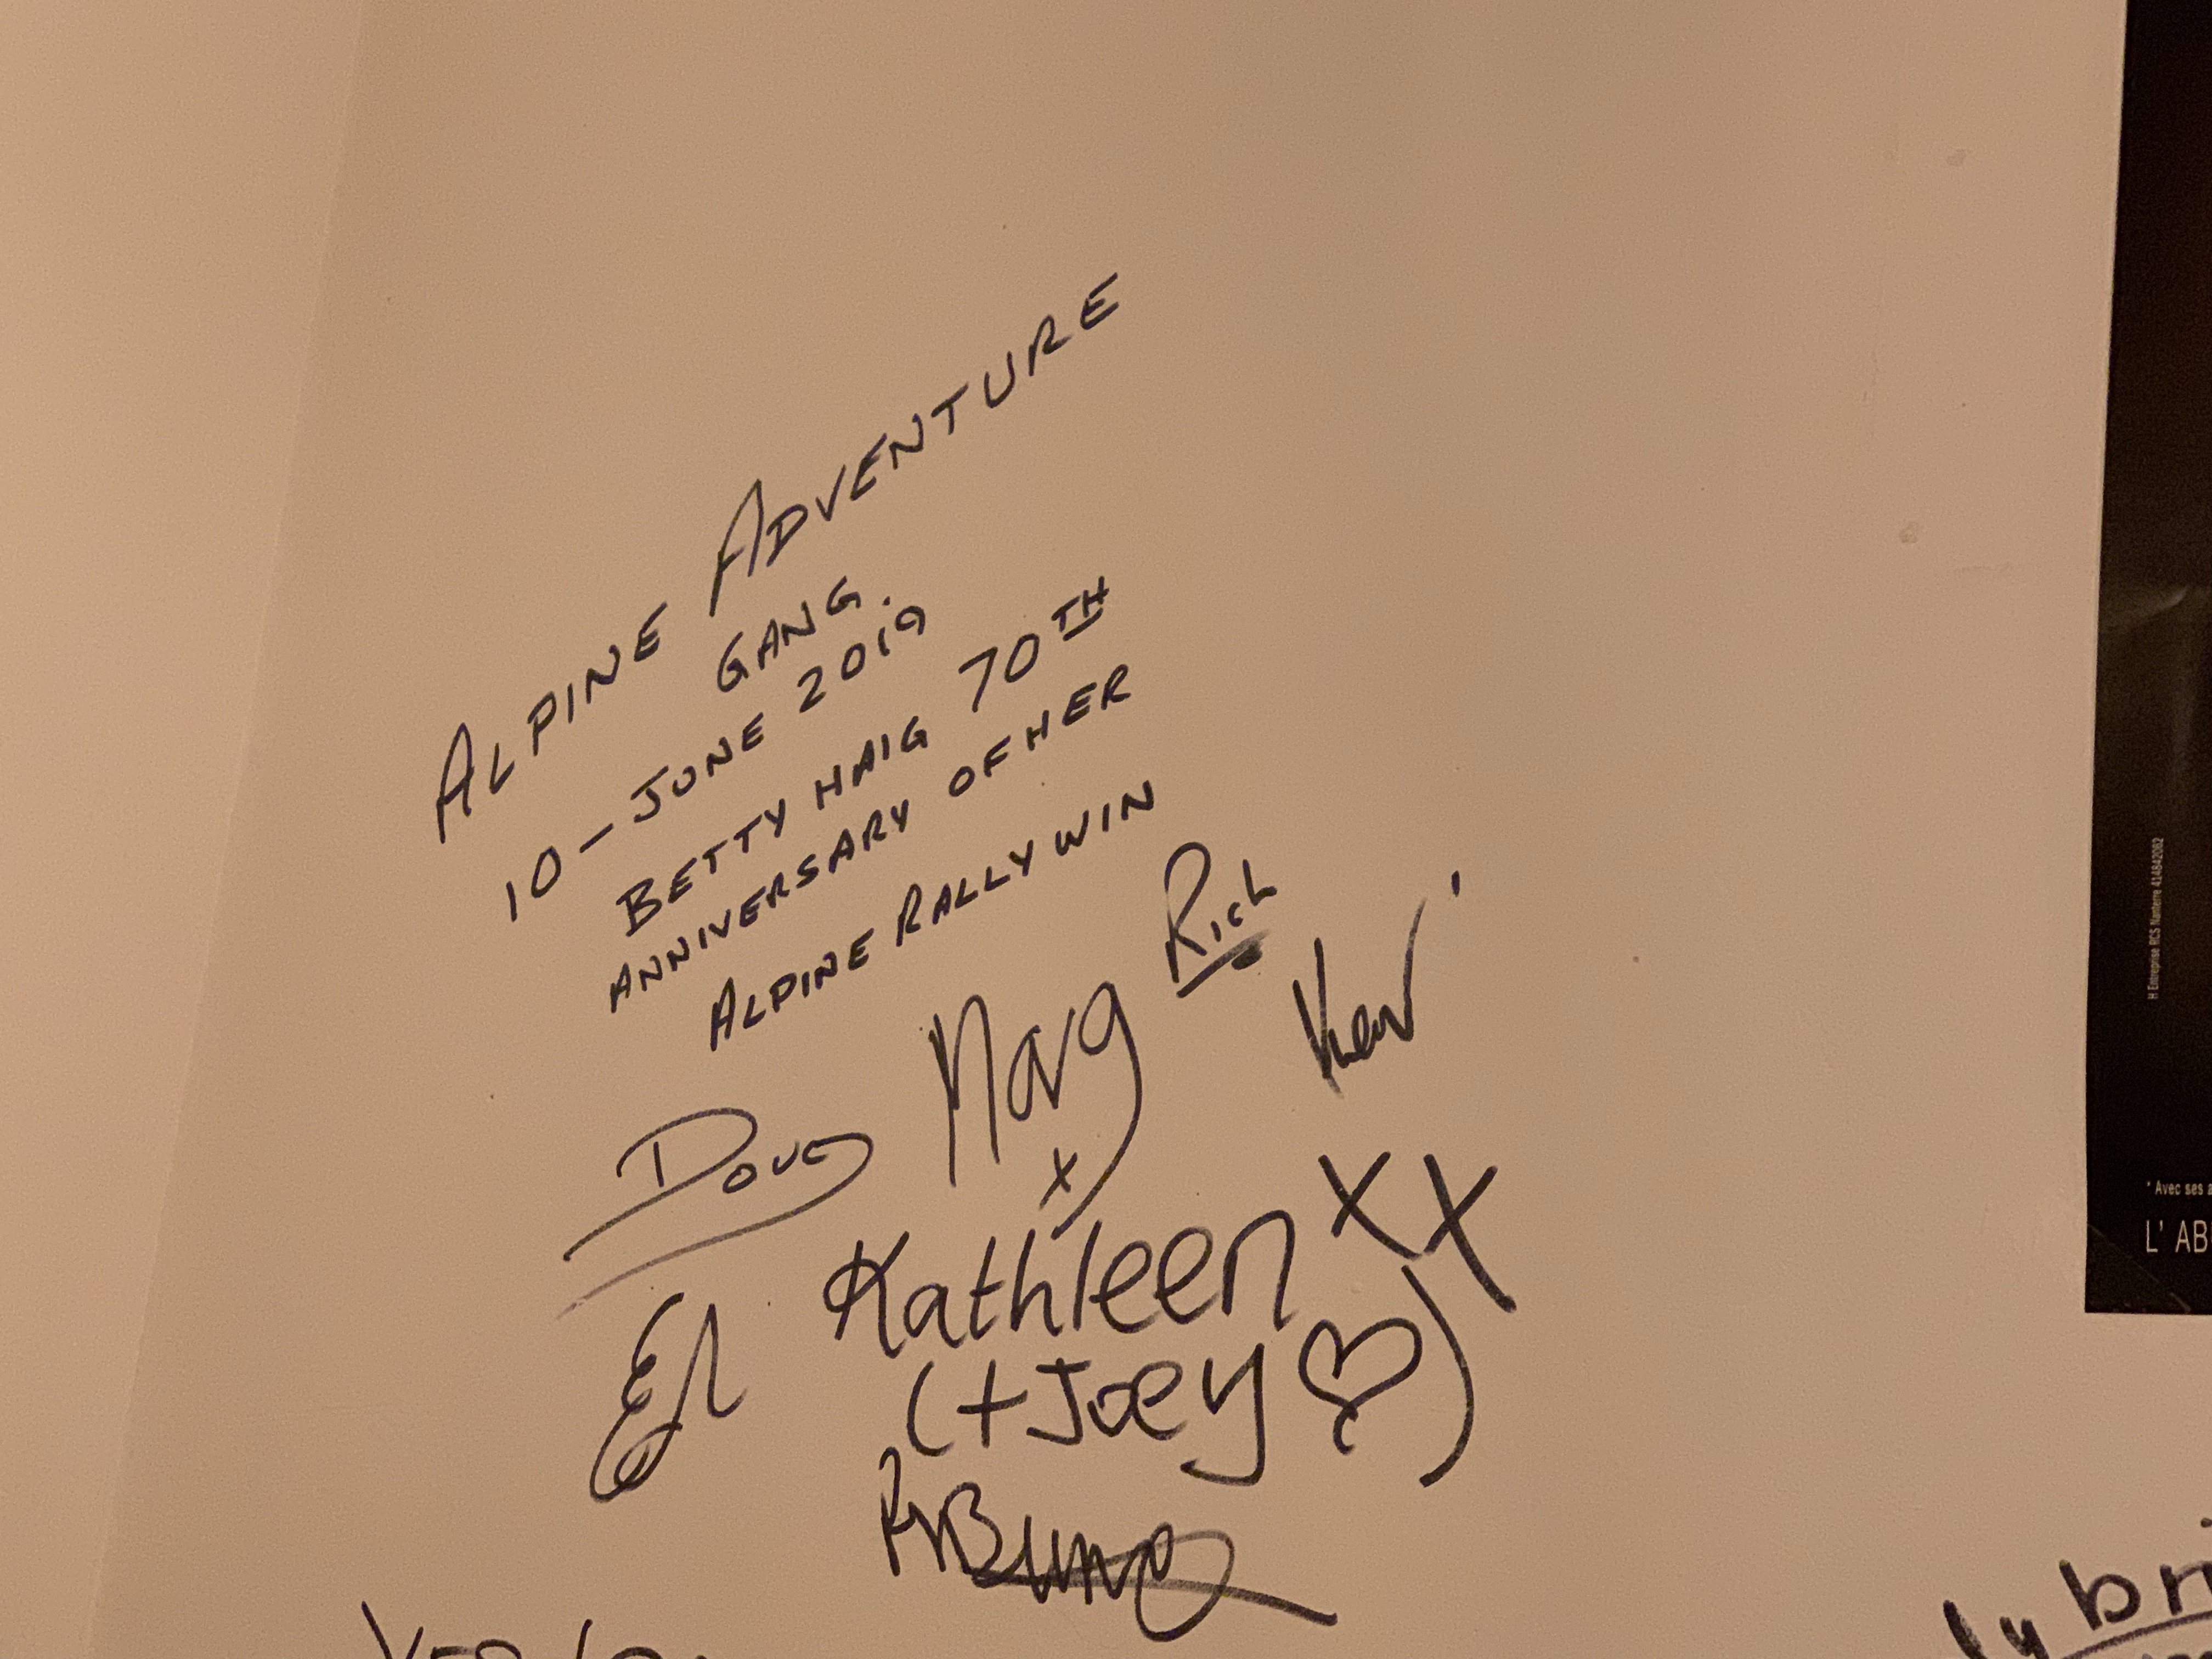 ALPINE ADVENTURE
GANG.
10 - JUNE 2019
BETTY HAIG 70TH
ANNIVERSARY OF HER
ALPINE RALLY WIN
Rich
Marg
x
Kev
Doug
Kathleen xx
(+ Joey ♡)
H Entreprise RCS Nanterre 414842062
* Avec ses a
L' AB